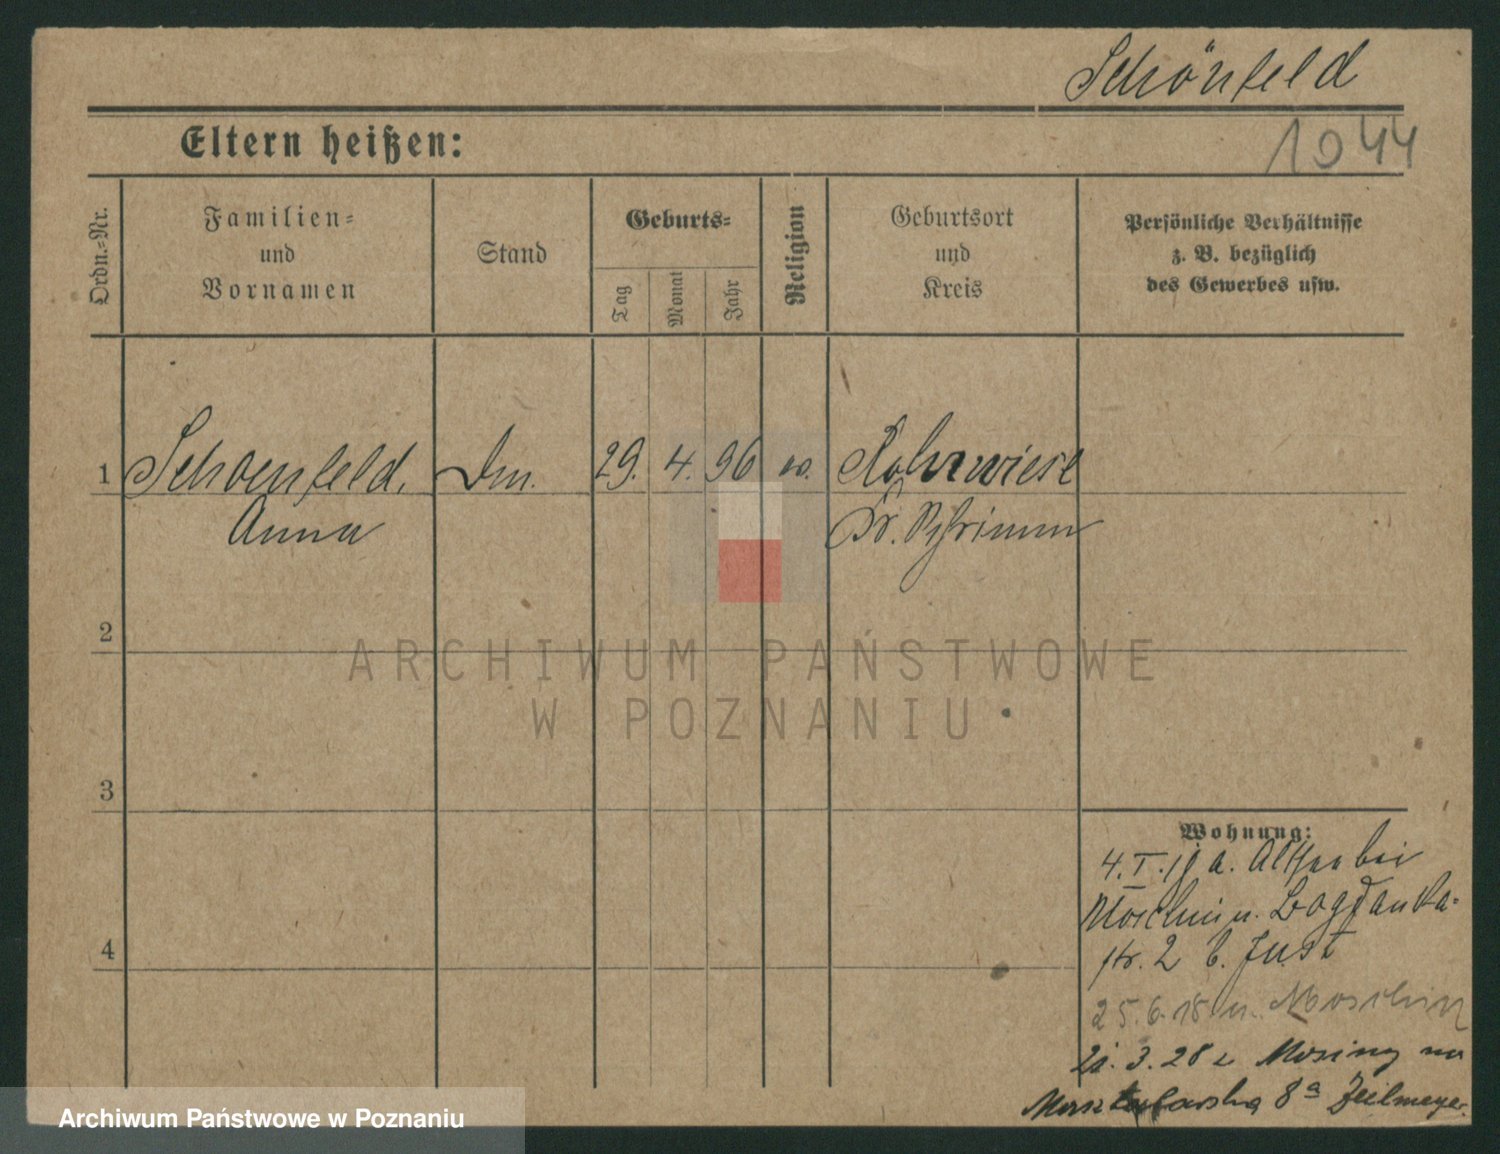 Schönfeld
Eltern heißen:
1044
Ordn.-Nr.
Familien-
und
Vornamen
Stand
Geburts-
Tag
Monat
Jahr
Religion
Geburtsort
und
Kreis
Persönliche Verhältnisse
z. B. bezüglich
des Gewerbes usw.
1 Schoenfeld, Dm. 29. 4. 96 ev. Rohrwiese
Anna Kr. Schrimm
2
ARCHIWUM PAŃSTWOWE
W POZNANIU
3
Wohnung:
4. I. a. bei
Moschin n. Bogdanka-
str. 2 b. Just
25.6.18 n. Moschin
21. 3. 28 z Mosiny na
Masztalarska 8a Zeilmeyer.
4
Archiwum Państwowe w Poznaniu